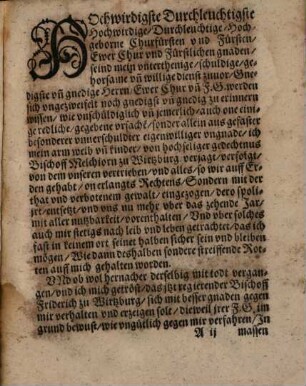 HOchwirdigste Durchleuchtigste
Hochwirdige / Durchleuchtige / Hoch-
geborne Churfürsten vnd Fürsten /
Ewer Chur vnd Fürstlichen gnaden /
seind mein vnterthenige / schuldige / ge-
horsame vn̄ willige dienst zuuor. Gne-
digste vn̄ gnedige Herrn. Ewer Chur vn̄ F. G. werden
sich vngezweifelt noch gnedigst vn̄ gnedig zu erinnern
wissen / wie vnschüldiglich vn̄ jemerlich / auch one eini-
ge redliche / gegebene vrsach / sonder allein aus gefaster
besonder vnuerschuldter eigenwilliger vngnade / ich
mein arm weib vn̄ kinder / von hochseliger gedechtnus
Bischoff Melchiorn zu Wirtzburg verjagt / verfolgt /
von dem vnseren vertrieben / vnd alles / so wir auff Er-
den gehabt / on erlangts Rechtens / Sondern mit der
that vnd verbotenem gewalt / eingezogen / dero spoli-
irt / entsetzt / vnd vns nu mehr vber das zehende Jar /
mit aller nutzbarkeit / vorenthalten / Vnd vber solches
auch mir stetigs nach leib vnd leben getrachtet / das ich
fast in keinem ort seinet halben sicher sein vnd bleiben
mögen / Wie dann deshalben sondere streiffende Rot-
ten auff mich gehalten worden.
VNd ob wol hernacher derselbig mit todt vergan-
gen / vnd ich mich getröst / das itzt regierender Bischoff
Friderich zu Wirtzburg / sich mit besser gnaden gegen
mir verhalten vnd erzeigen solt / dieweil jrer F. G. im
grund bewust / wie vngütlich gegen mir verfahren / In
A ij massen